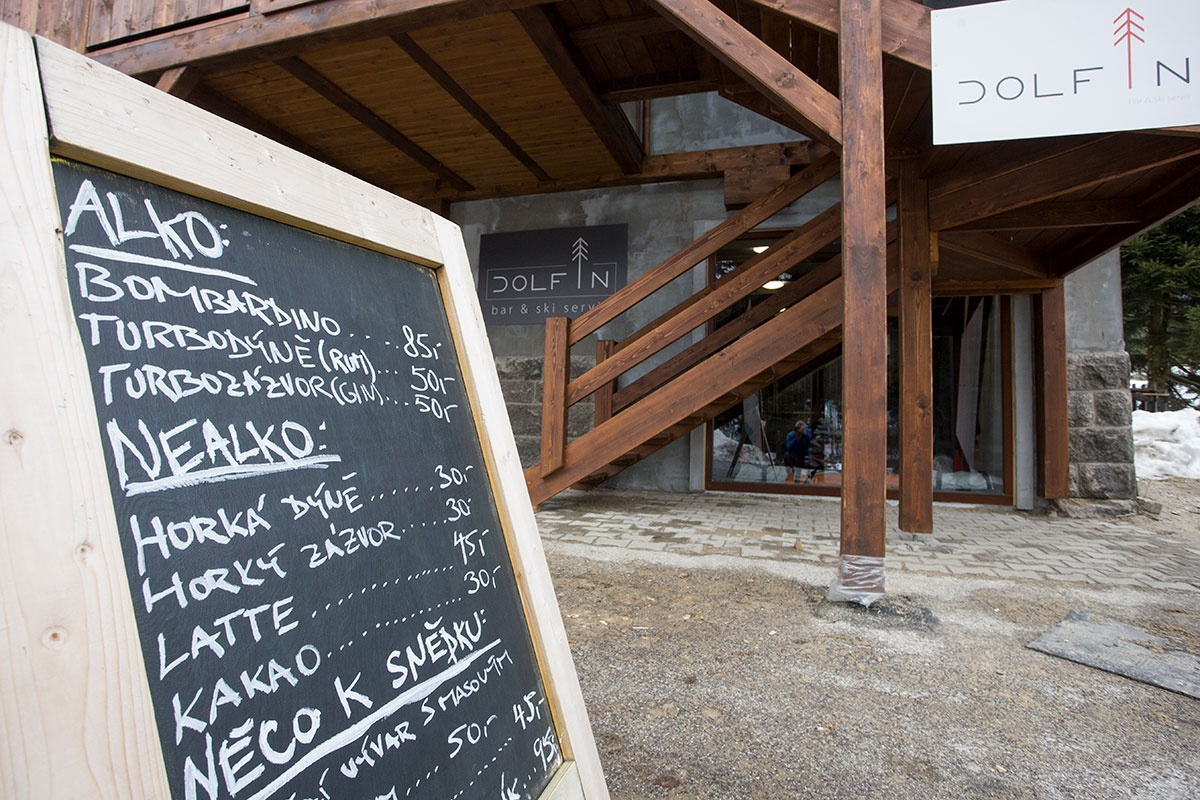 ALKO:
BOMBARDINO.... 85,-
TURBODÝNĚ(RUM)... 50,-
TURBOZÁZVOR(GIN)... 50,-
NEALKO:
HORKÁ DÝNĚ ....... 30,-
HORKÝ ZÁZVOR ..... 30,-
LATTE ............ 45,-
KAKAO............. 30,-
NĚCO K SNĚDKU:
VÝVAR S MASOVÝM
50,-
45,-
95,-
DOLFIN
bar & ski servis
DOLFIN
bar & ski servis